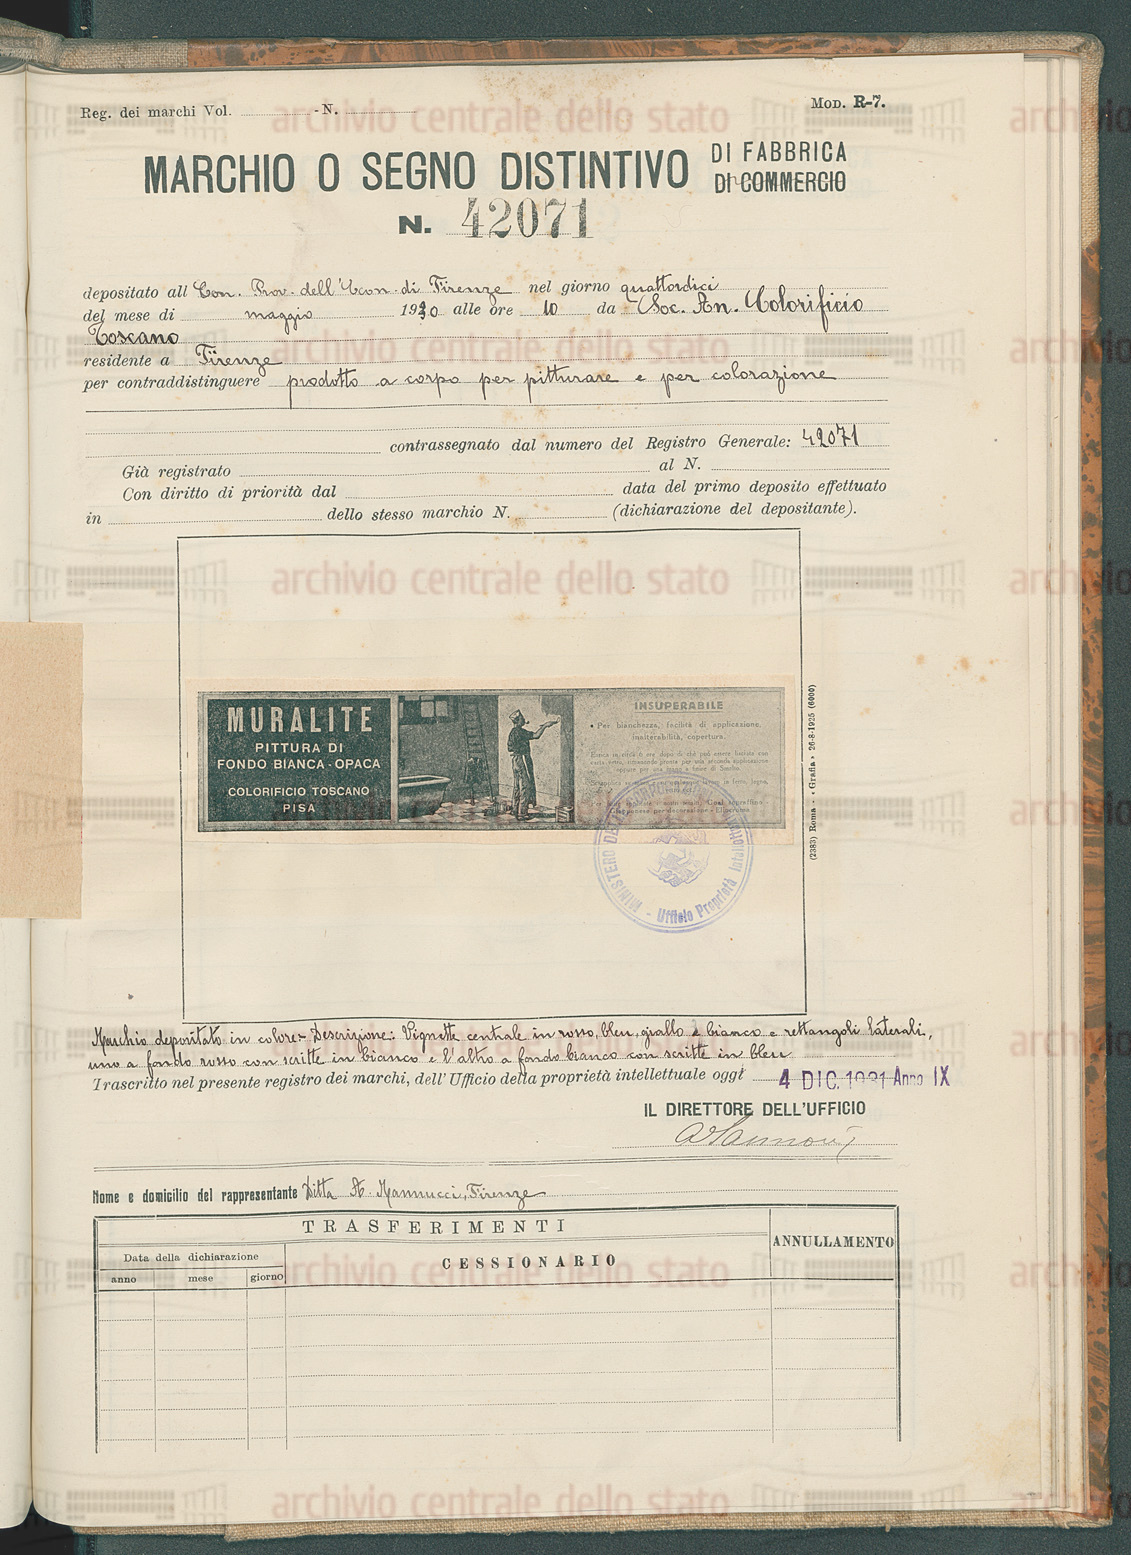 Reg. dei marchi Vol. - N. Mod. R-7.
MARCHIO O SEGNO DISTINTIVO DI FABBRICA
DI COMMERCIO
N. 42071
depositato all Con. Prov. dell'Econ. di Firenze nel giorno quattordici
del mese di maggio 1930 alle ore 10 da Soc. An. Colorificio
Toscano
residente a Firenze
per contraddistinguere prodotto a corpo per pitturare e per colorazione
contrassegnato dal numero del Registro Generale: 42071
Già registrato al N.
Con diritto di priorità dal data del primo deposito effettuato
in dello stesso marchio N. (dichiarazione del depositante).
MURALITE
PITTURA DI
FONDO BIANCA - OPACA
COLORIFICIO TOSCANO
PISA
INSUPERABILE
Per bianchezza, facilità di applicazione,
inalterabilità, copertura.
MINISTERO DELLE Intellettuale - Ufficio Proprietà
(2383) Roma - «Grafia» 26-8-1925 (6000)
Marchio depositato in colore - Descrizione: Vignette centrale in rosso, bleu, giallo e bianco e rettangoli laterali,
uno a fondo rosso con scritte in bianco e l'altro a fondo bianco con scritte in bleu
Trascritto nel presente registro dei marchi, dell'Ufficio della proprietà intellettuale oggi 4 DIC. 1931 Anno IX
IL DIRETTORE DELL'UFFICIO
Nome e domicilio del rappresentante Ditta A. Mannucci, Firenze
TRASFERIMENTI
ANNULLAMENTO
Data della dichiarazione
CESSIONARIO
anno mese giorno
archivio centrale dello stato